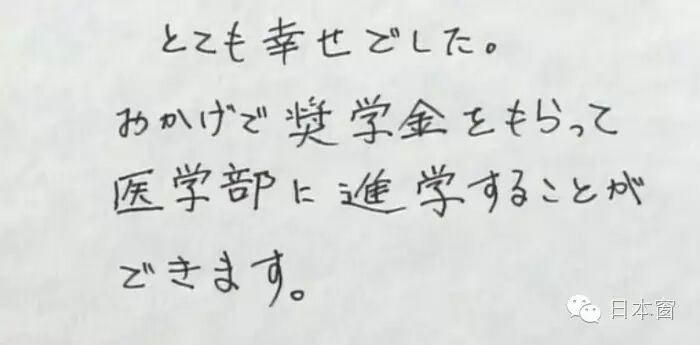 とても幸せでした。
おかげで奨学金をもらって
医学部に進学することが
できます。
日本窗